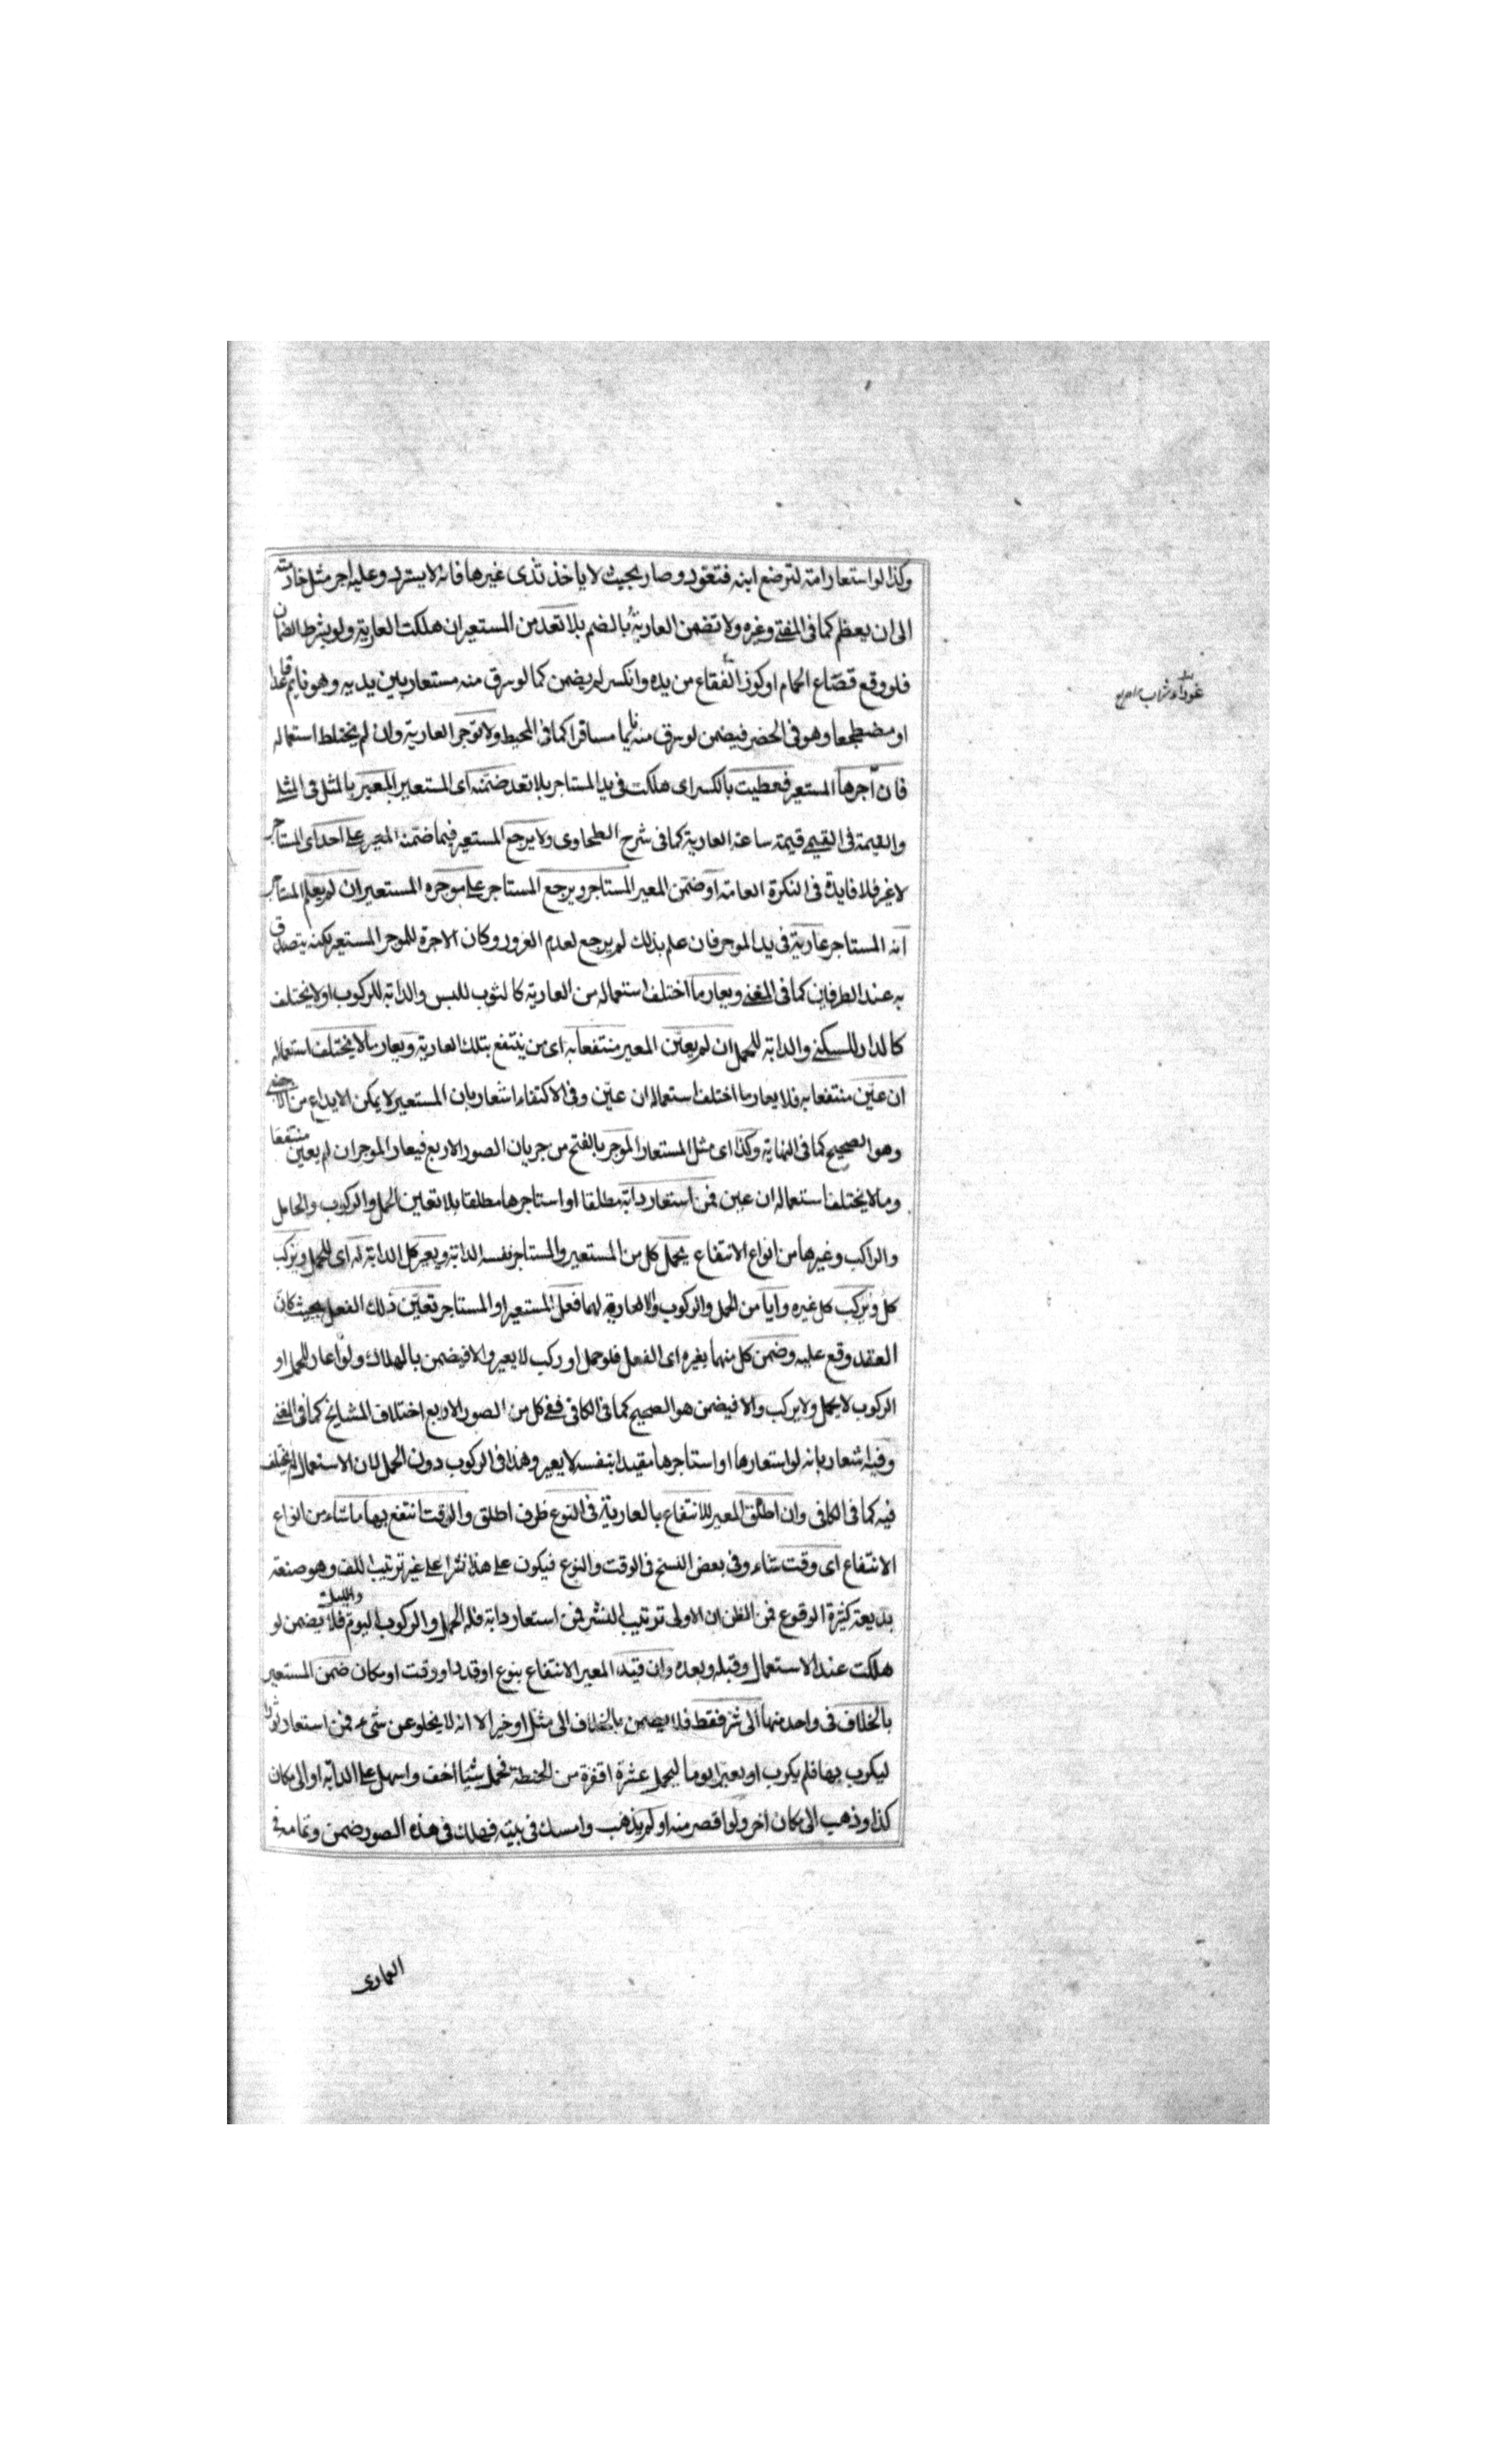 وكذا لو استعار امة لترضع ابنه فتعود وصار بحيث لا ياخذ ثدى غيرها فانه لا يسترد وعليه اجر مثل خادمته
الى ان يعظم كما فى المغنى وغيره ولا تضمن العارية بالضم بلا تعد من المستعير ان هلكت العارية ولو بشرط الضمان
فلو وقع قصاع الحمام او كوز الفقاع من يده وانكسر لم يضمن كما لو سرق منه مستعار بين يديه وهو نايم قاعدا
او مضطجعا وهو فى الحضر فيضمن لو سرق منه نايما مسافرا كما فى المحيط ولا توجر العارية وان لم يختلط استعماله
فان آجرها المستعير فعطبت بالكسر اى هلكت فى يد المستاجر بلا تعد ضمنه اى المستعير المعير بالمثل فى المثلى
والقيمة فى القيمى قيمة ساعة العارية كما فى شرح الطحاوى ولا يرجع المستعير فيما ضمنه المعير على احد اى المستاجر
لا غير فلا فايدة فى النكرة العامة او ضمن المعير المستاجر ويرجع المستاجر على موجره المستعير ان لم يعلم المستاجر
انه المستاجر عارية فى يد الموجر فان علم بذلك لم يرجع لعدم الغرور وكان الاجرة للموجر المستعير لكنه يتصدق
به عند الطرفين كما فى المغنى ويعار ما اختلف استعماله من العارية كالثوب للبس والدابة للركوب او لا يختلف
كالدار للسكنى والدابة للحمل ان لم يعين المعير منتفعا به اى من ينتفع بتلك العارية ويعار ما لا يختلف استعماله
ان عين منتفعا به فلا يعار ما اختلف استعماله ان عين وفى الاكتفاء اشعار بان المستعير لا يمكن الايداع من الاجنبى
وهو الصحيح كما فى النهاية وكذا اى مثل المستعار الموجر بالفتح من جريان الصور الاربع فيعار الموجر ان لم يعين منتفعا
وما لا يختلف استعماله ان عين فمن استعار دابة مطلقا او استاجرها مطلقا بلا تعين الحمل والركوب والحامل
والراكب وغيرها من انواع الانتفاع يحمل كل من المستعير والمستاجر نفسه الدابة ويعير كل الدابة له اى للحمل ويركب
كل ويركب كل غيره وايا من الحمل والركوب والاعارة لهما فعل المستعير او المستاجر تعين ذلك الفعل بحيث كان
العقد وقع عليه وضمن كل منهما بغيره اى الفعل فلو حمل او ركب لا يعير والا فيضمن بالهلاك ولو اعار للحمل او
الركوب لا يحمل ولا يركب والا فيضمن هو الصحيح كما فى الكافى ففى كل من الصور الاربع اختلاف المشايخ كما فى المغنى
وفيه اشعار بانه لو استعارها او استاجرها مقيدا بنفسه لا يعير وهذا فى الركوب دون الحمل لان الاستعمال لم يختلف
فيه كما فى الكافى وان اطلق المعير للانتفاع بالعارية فى النوع ظرف اطلق والوقت انتفع بها ما شاء من انواع
الانتفاع اى وقت شاء وفى بعض النسخ فى الوقت والنوع فيكون على هذا نشرا على غير ترتيب اللف وهو صنعة
بديعة كثيرة الوقوع فمن الظن ان الاولى ترتيب النشر فمن استعار دابة فله الحمل والركوب اليوم والليلة فلا يضمن لو
هلكت عند الاستعمال وقبله وبعده وان قيد المعير الانتفاع بنوع او قدر او وقت او مكان ضمن المستعير
بالخلاف فى واحد منها الى شر فقط فلا يضمن بالخلاف الى مثل او خير الا انه لا يخلو عن شىء فمن استعار ثورا
ليكرب بها فلم يكرب او بعيرا يوما ليحمل عشرة اقفزة من الحنطة فحمل شيئا اخف واسهل على الدابة او الى مكان
كذا وذهب الى مكان اخر ولو اقصر منه او لم يذهب وامسك فى بيته فهلك فى هذه الصور ضمن وتمامه فى
العمادى